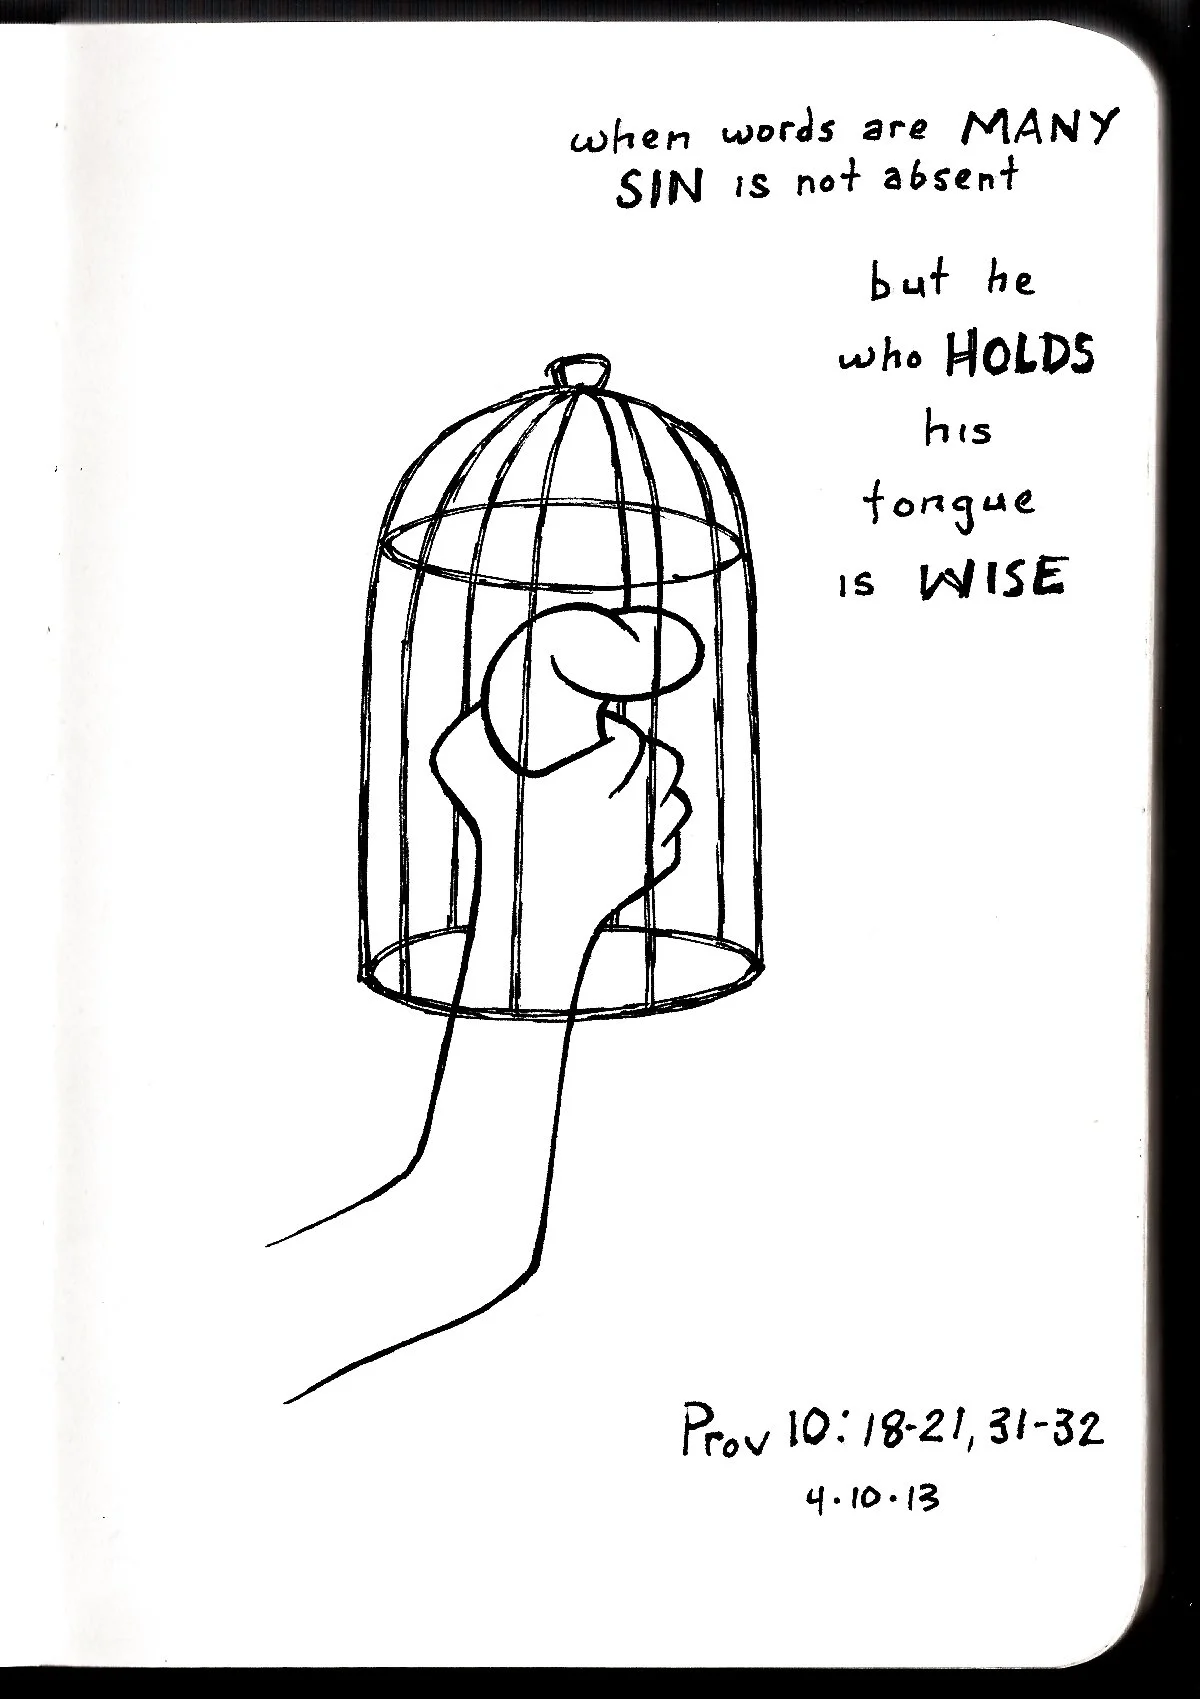 when words are MANY
SIN is not absent
but he
who HOLDS
his
tongue
is WISE
Prov 10:18-21, 31-32
4.10.13